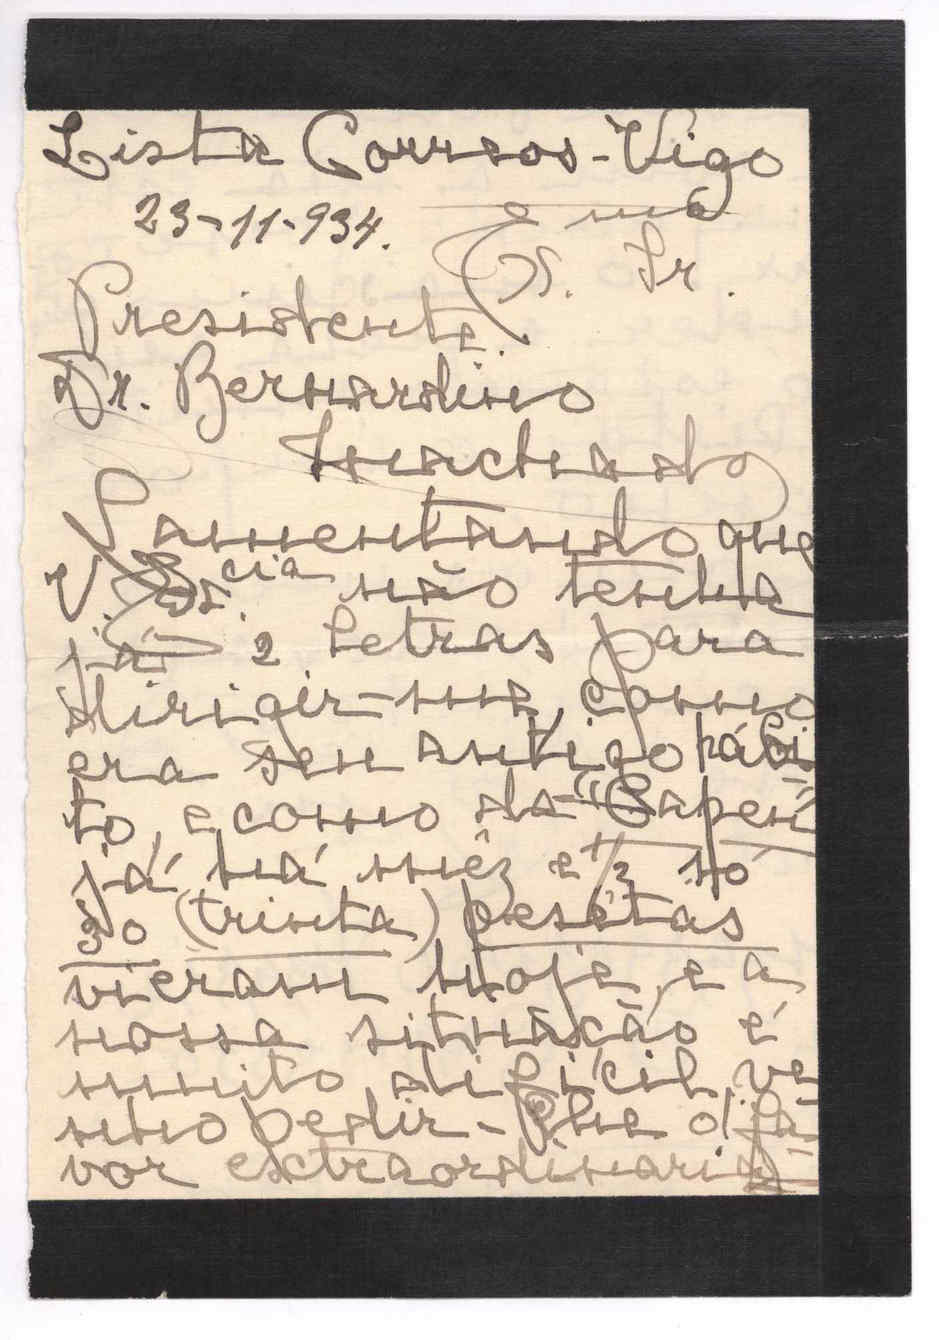 Lista Correos - Vigo
23-11-934.
Exmo
Sr.
Presidente,
Dr. Bernardino
Machado
Lamentando que
V. Excia não tenha
já 2 letras para
dirigir-me, como
era seu antigo hábi
to, e como da
já há mêz e 1/2 só
30 (trinta) pesêtas
vieram hoje, e a
nossa situação é
muito dificil, ve
nho pedir-lhe o fa
vor extraordinario